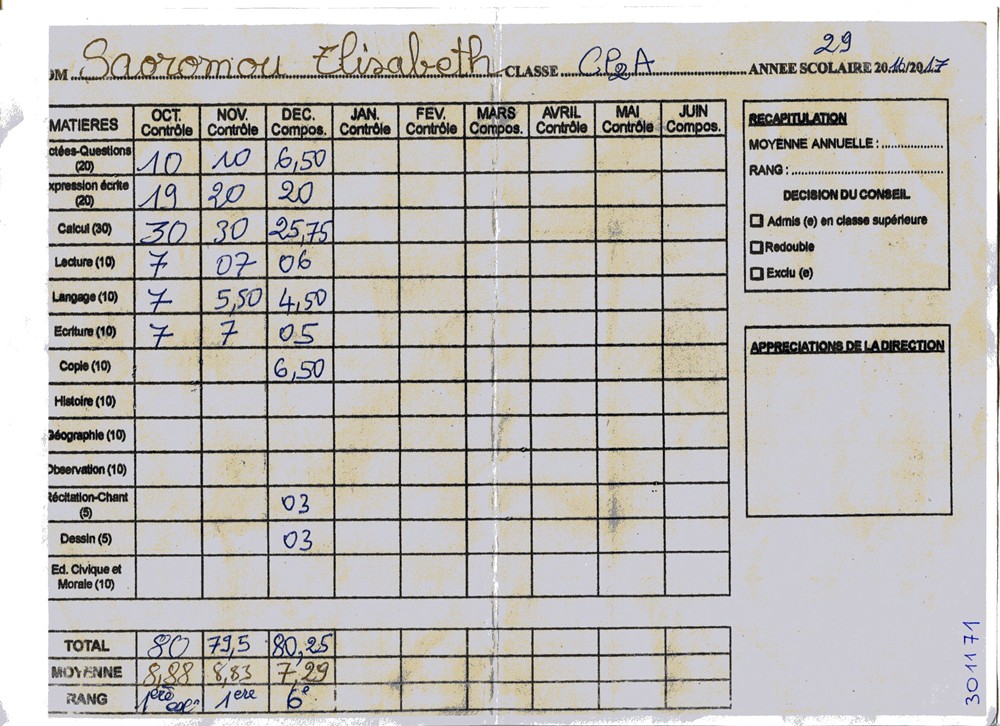 29
OM Saoromou Elisabeth CLASSE CP2A ANNEE SCOLAIRE 2016/2017
MATIERES OCT. Contrôle NOV. Contrôle DEC. Compos. JAN. Contrôle FEV. Contrôle MARS Compos. AVRIL Contrôle MAI Contrôle JUIN Compos.
ctées-Questions (20) 10 10 6,50
xpression écrite (20) 19 20 20
Calcul (30) 30 30 25,75
Lecture (10) 7 07 06
Langage (10) 7 5,50 4,50
Ecriture (10) 7 7 05
Copie (10) 6,50
Histoire (10)
Géographie (10)
Observation (10)
Récitation-Chant (5) 03
Dessin (5) 03
Ed. Civique et Morale (10)
TOTAL 80 79,5 80,25
MOYENNE 8,88 8,83 7,29
RANG 1ère 1ere 6e
RECAPITULATION
MOYENNE ANNUELLE :
RANG :
DECISION DU CONSEIL
Admis (e) en classe supérieure
Redouble
Exclu (e)
APPRECIATIONS DE LA DIRECTION
301171